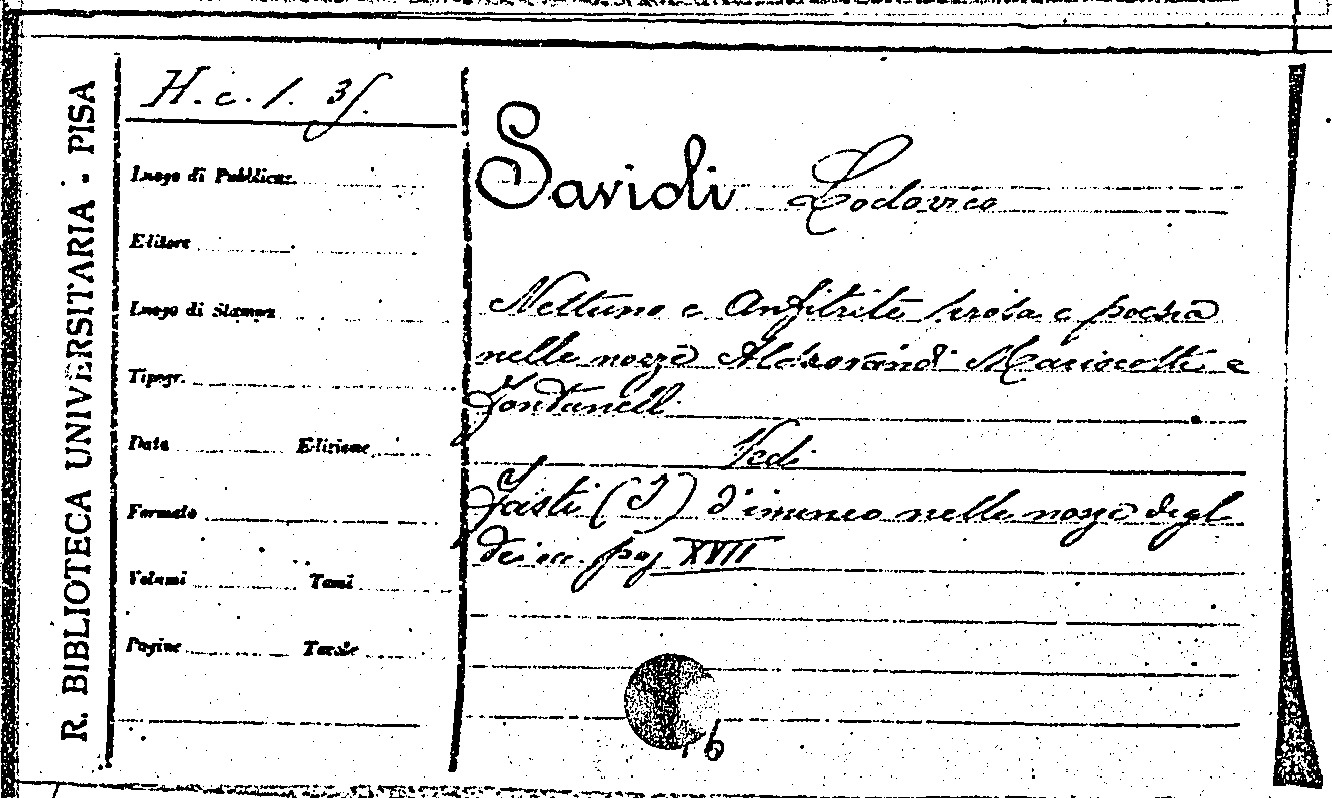 R. BIBLIOTECA UNIVERSITARIA - PISA
H. c. 1. 35.
Luogo di Pubblicaz.
Editore
Luogo di Stampa
Tipogr.
Data Edizione
Formato
Volumi Tomi
Pagine Tavole
Savioli Lodovico
Nettuno e Anfitrite prosa e poesia
nelle nozze Aldrovandi Mariscotti e
Fontanelli
Vedi
Fasti (I) d'imeneo nelle nozze degli
Dei ecc. pag XVII
6